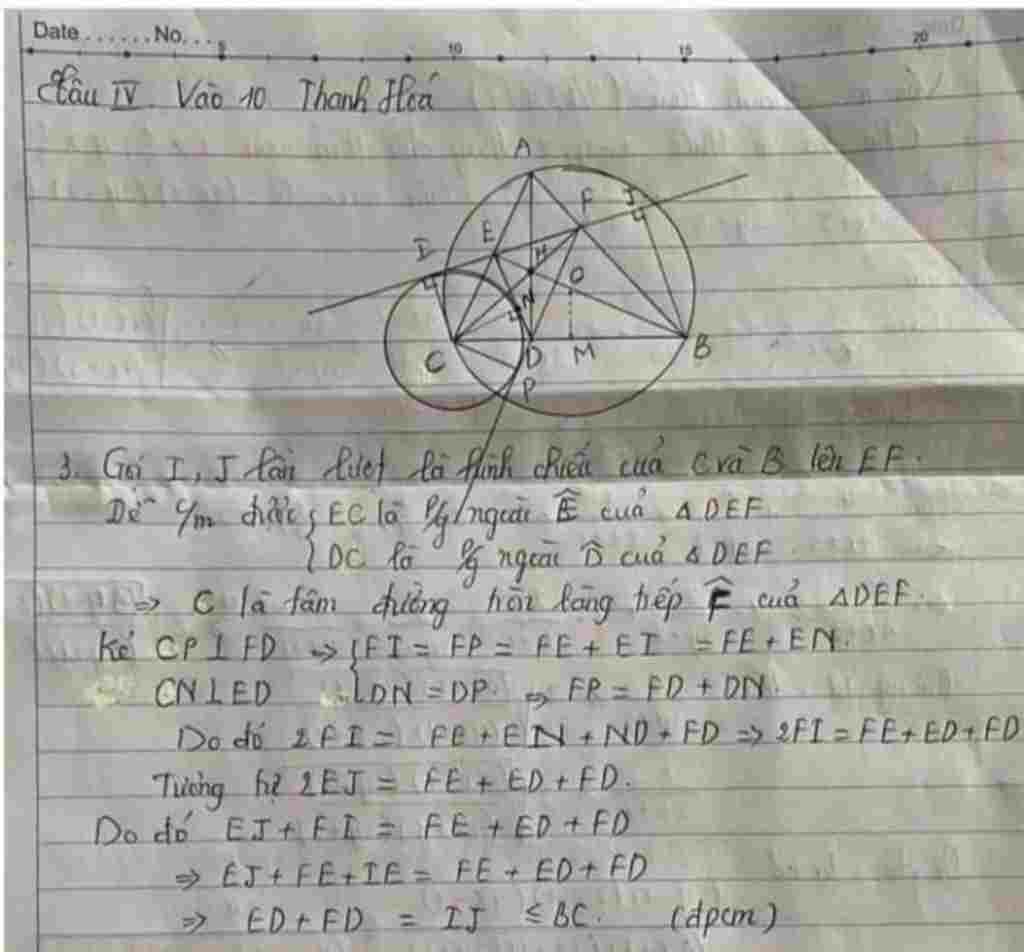 Date ...... No. ...
10 15 20
Câu IV Vào 10 Thanh Hoá
A
F J
I E
H
O
N
C D M B
P
3. Gọi I, J lần lượt là hình chiếu của C và B lên EF.
Dễ c/m được { EC là p/g ngoài Ê của Δ DEF
{ DC là p/g ngoài D̂ của Δ DEF
=> C là tâm đường tròn bàng tiếp F̂ của ΔDEF.
Kẻ CP ⊥ FD => { FI = FP = FE + EI = FE + EN.
CN ⊥ ED { DN = DP. => FP = FD + DN
Do đó 2FI = FE + EN + ND + FD => 2FI = FE + ED + FD
Tương tự 2EJ = FE + ED + FD.
Do đó EJ + FI = FE + ED + FD
=> EJ + FE + IE = FE + ED + FD
=> ED + FD = IJ ≤ BC. (đpcm)